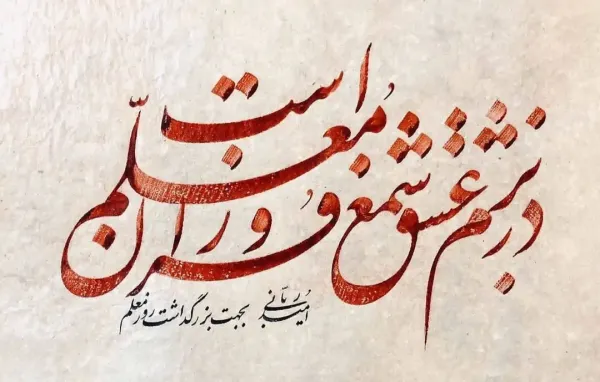 در بزم عشق شمع فروزان معلّم است
امید ربانی بجهت بزرگداشت روز معلم